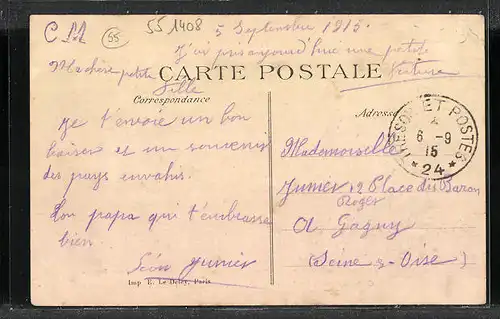 C M 55 551408 5 Septembre 1915.
J'ai pris aujourd'hui une petite
Ma chère petite
fille
CARTE POSTALE
Correspondance
Adresse
Je t'envoie un bon
baiser et un souvenir
des pays envahis.
Ton papa qui t'embrasse
bien.
Léon Junier
Imp E. Le Deley, Paris
TRESOR ET POSTES
6 -9
15
* 24 *
Mademoiselle
Junier 12 Place du Baron
Roger
A Gagny
(Seine & Oise)